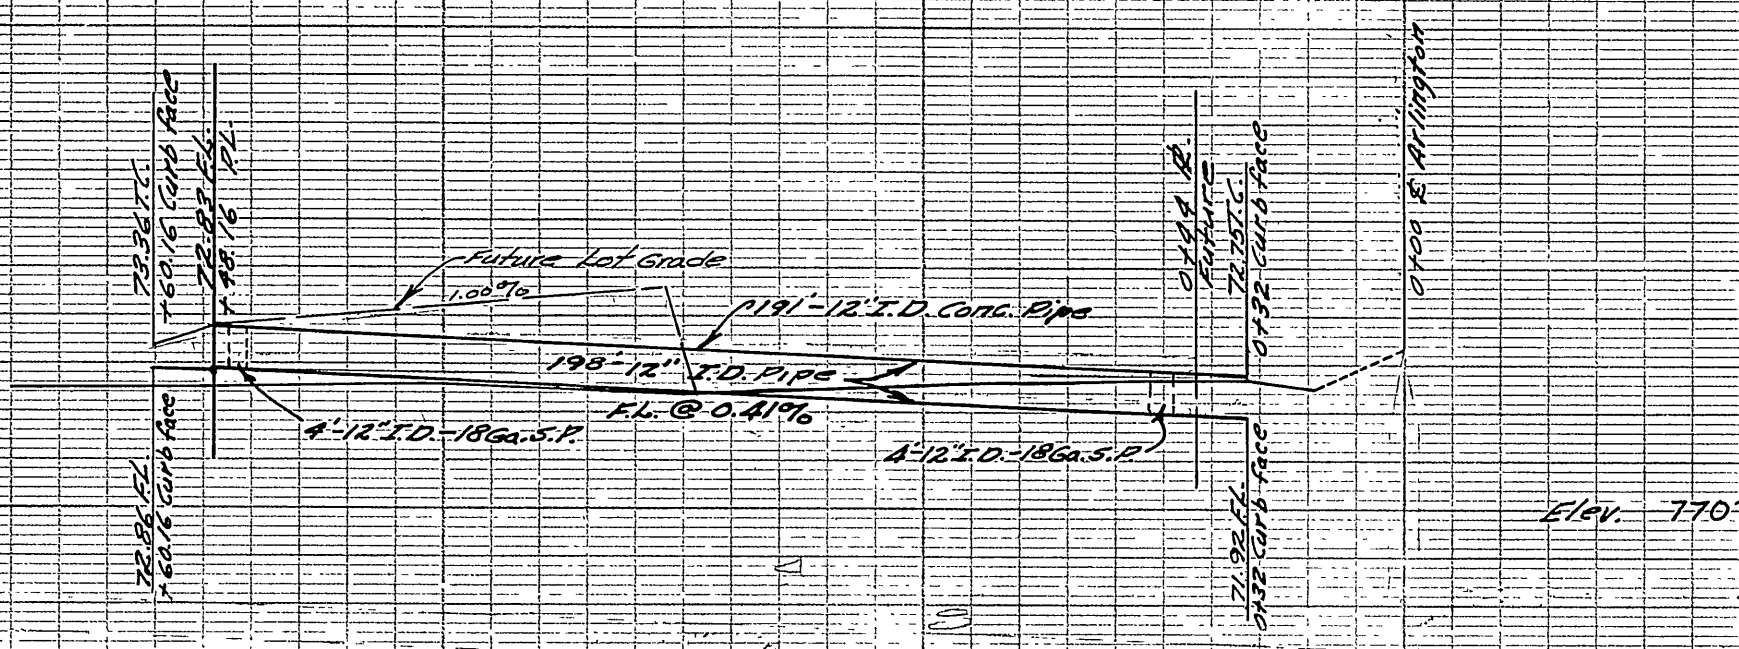 73.36 T.C.
+60.16 Curb face
72.83 F.L.
+48.16 P.L.
Future Lot Grade
1.00%
191'-12" I.D. Conc. Pipe
198'-12" I.D. Pipe
F.L. @ 0.41%
4'-12" I.D.-18Ga. S.P.
4'-12" I.D.-18Ga. S.P.
72.86 F.L.
+60.16 Curb face
0+44 ⅊
Future
72.75 T.C.
0+32 Curb face
71.92 F.L.
0+32 Curb face
0+00 ℄ Arlington
Elev. 770